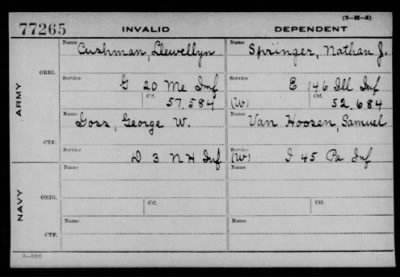 (3-M-2)
77265 INVALID DEPENDENT
Name Cushman, Llewellyn Name Springer, Nathan J.
ARMY
ORIG.
Service G 20 Me Inf Service E 146 Ill Inf
Ctf. 57,584 (W) Ctf. 52,684
Name Goss, George W. Name Van Hoosen, Samuel
CTF.
Service D 3 NH Inf Service (W) I 45 Pa Inf
NAVY
Name Name
ORIG.
Ctf. Ctf.
Name Name
CTF.